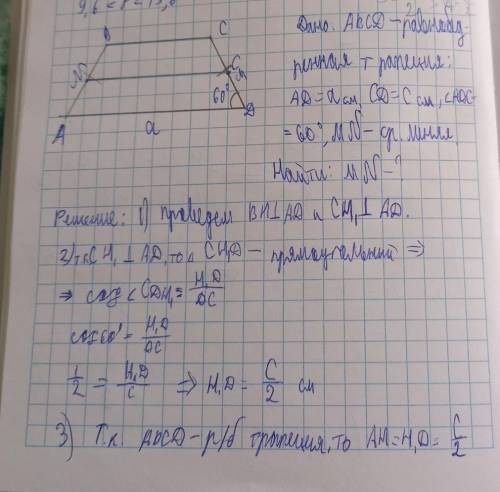 9,6 <
B C
N M C
60°
A a D
Дано: ABCD – равнобед
ренная трапеция:
AD = a см, CD = C см, ∠ADC
= 60°, MN – ср. линия
Найти: MN – ?
Решение: 1) проведем BH ⊥ AD и CH₁ ⊥ AD.
2) т.к. CH₁ ⊥ AD, то △ CH₁D – прямоугольный ⇒
⇒ cos ∠CDH₁ = H₁D/DC
cos 60° = H₁D/DC
1/2 = H₁D/C ⇒ H₁D = C/2 см
3) Т.к. ABCD – р/б трапеция, то AH = H₁D = C/2